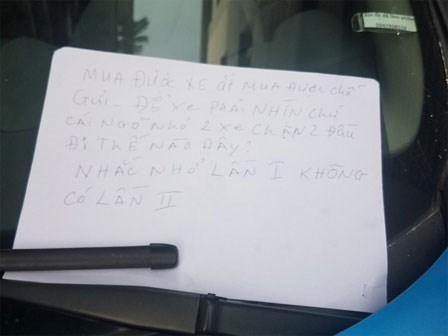 MUA ĐƯỢC XE ẮT MUA ĐƯỢC CHỖ
GỬI - ĐỂ XE PHẢI NHÌN CHỨ
CÁI NGÕ NHỎ 2 XE CHẶN 2 ĐẦU
ĐI THẾ NÀO ĐÂY?
NHẮC NHỞ LẦN I KHÔNG
CÓ LẦN II